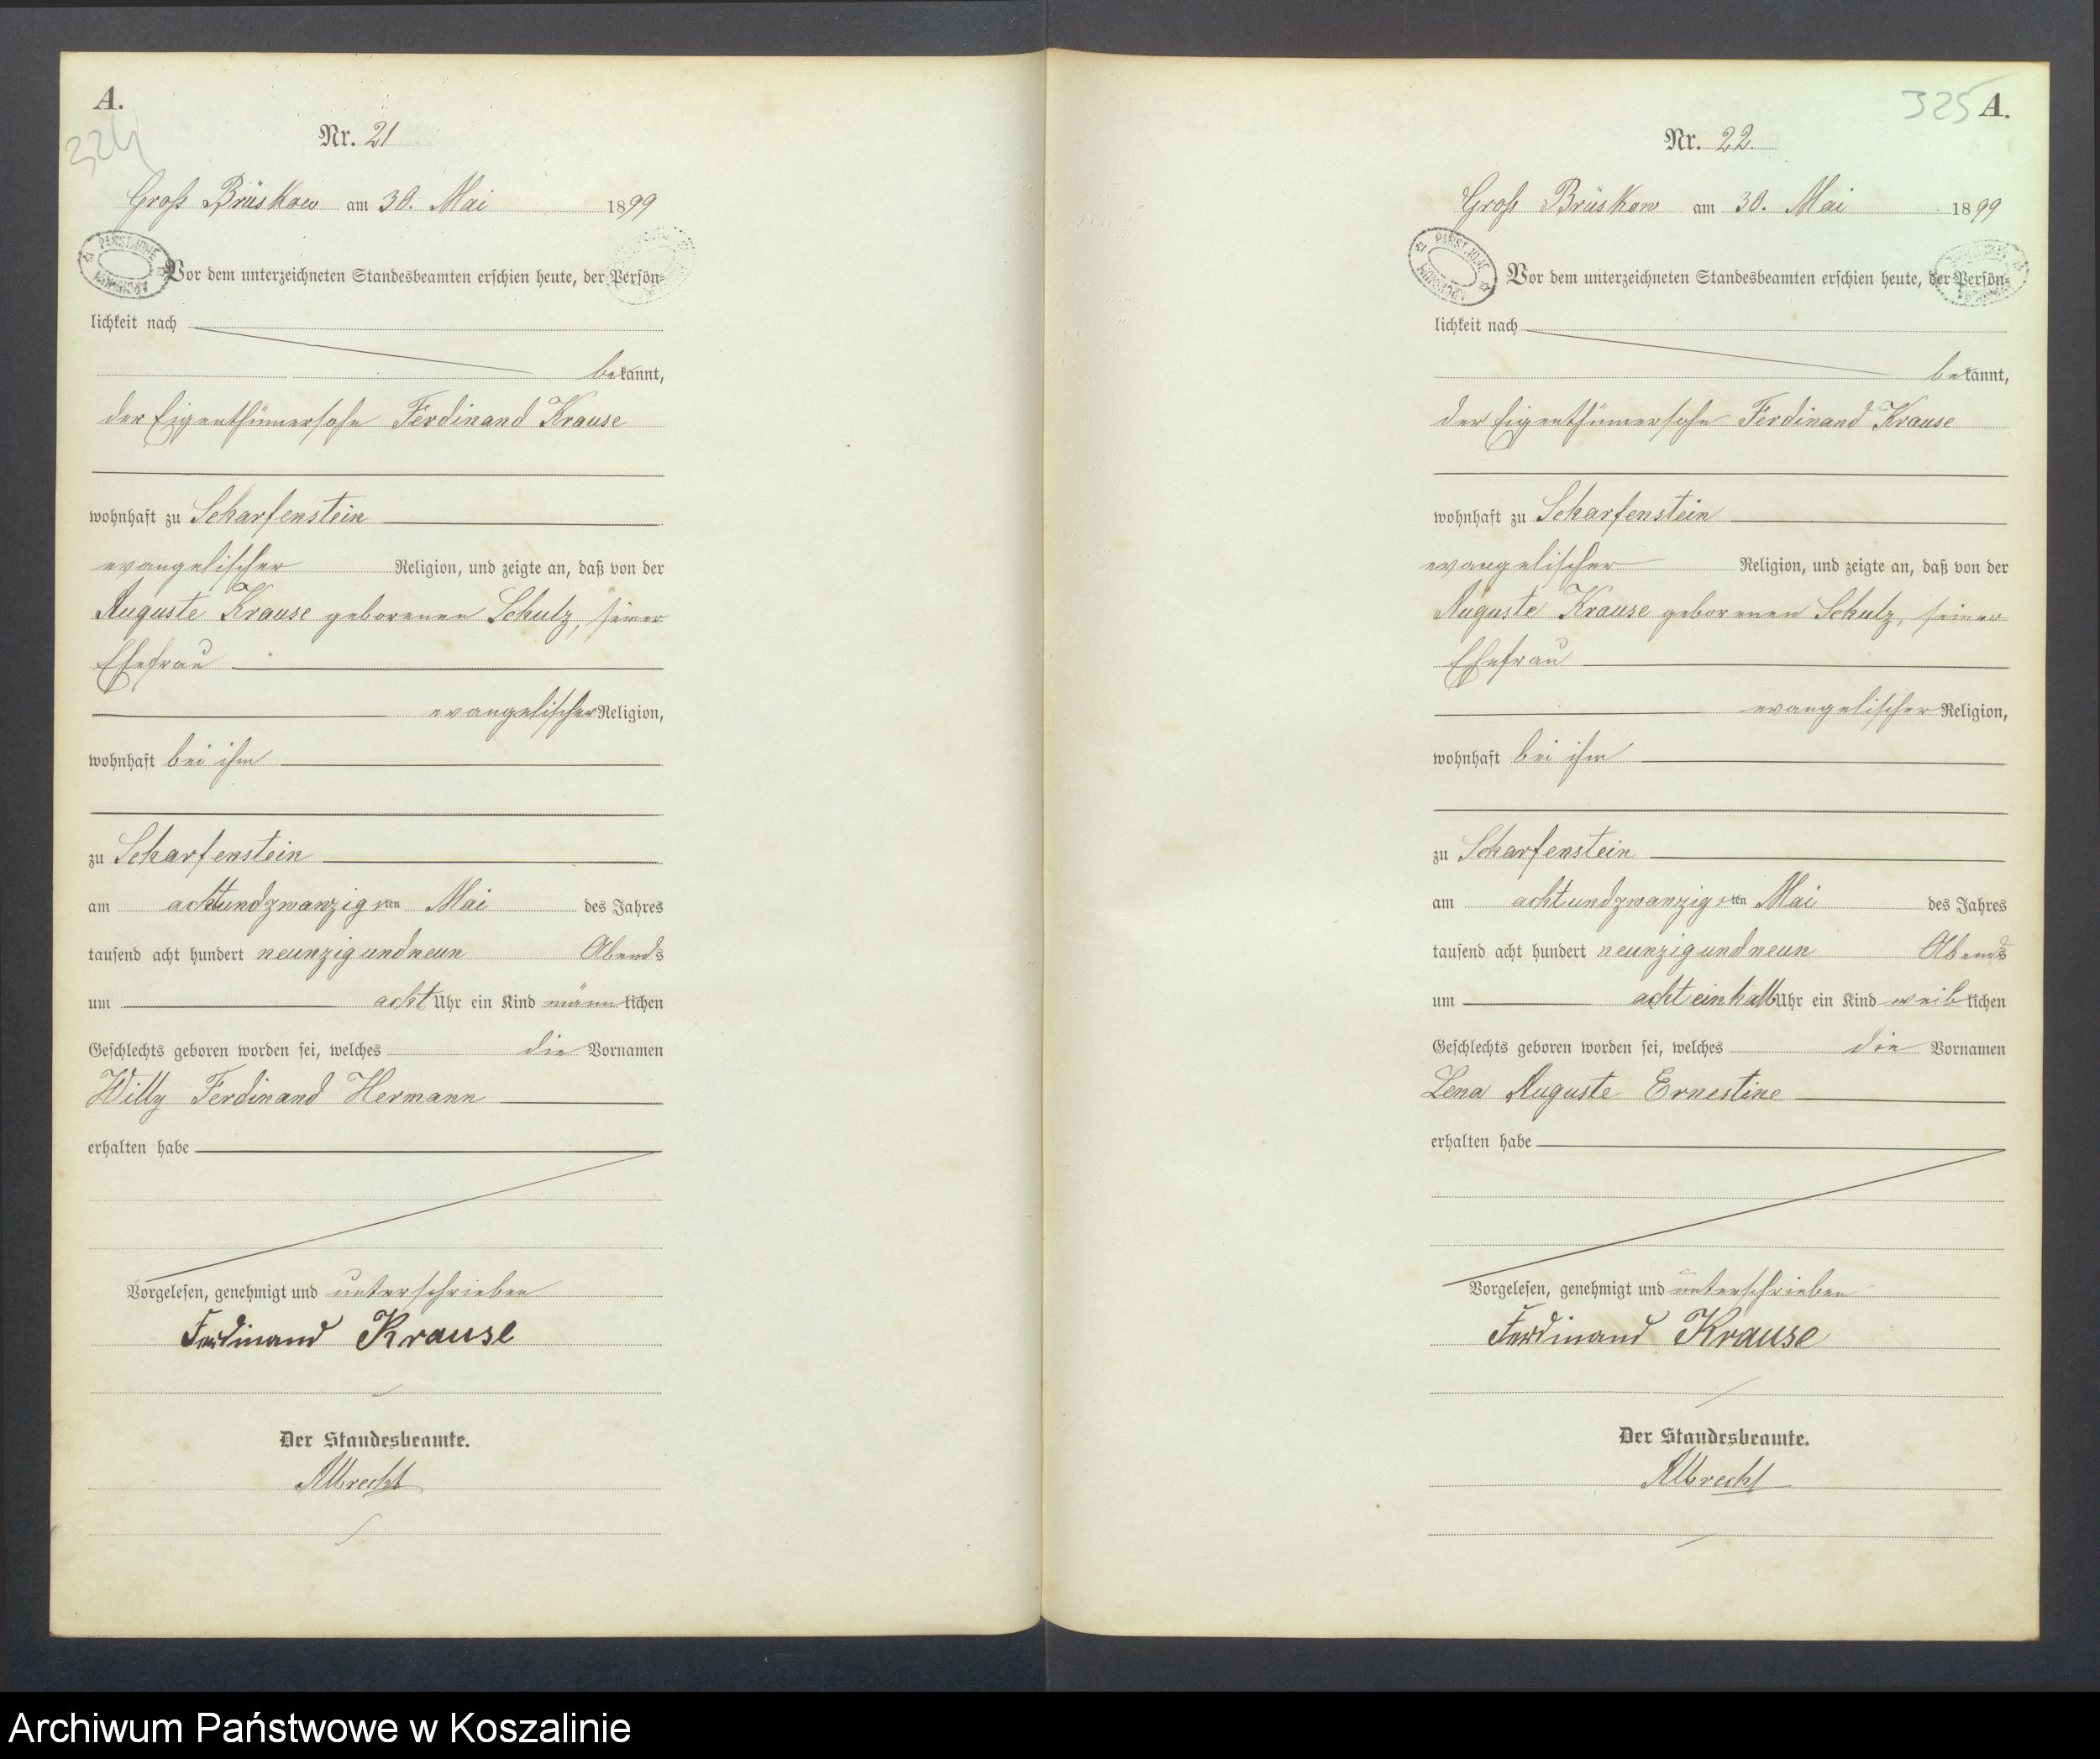 A.
324
Nr. 21
Groß Brüskow am 30. Mai 1899
PAŃSTWOWE ARCHIWUM
Vor dem unterzeichneten Standesbeamten erschien heute, der Persön-
lichkeit nach
bekannt,
der Eigenthümersohn Ferdinand Krause
wohnhaft zu Scharfenstein
evangelischer Religion, und zeigte an, daß von der
Auguste Krause geborenen Schulz, seiner
Ehefrau
evangelischer Religion,
wohnhaft bei ihm
zu Scharfenstein
am achtundzwanzigsten Mai des Jahres
tausend acht hundert neunzigundneun Abends
um acht Uhr ein Kind männlichen
Geschlechts geboren worden sei, welches die Vornamen
Willy Ferdinand Hermann
erhalten habe
Vorgelesen, genehmigt und unterschrieben
Ferdinand Krause
Der Standesbeamte.
Albrecht
325 A.
Nr. 22
Groß Brüskow am 30. Mai 1899
PAŃSTWOWE ARCHIWUM
Vor dem unterzeichneten Standesbeamten erschien heute, der Persön-
lichkeit nach
bekannt,
der Eigenthümersohn Ferdinand Krause
wohnhaft zu Scharfenstein
evangelischer Religion, und zeigte an, daß von der
Auguste Krause geborenen Schulz, seiner
Ehefrau
evangelischer Religion,
wohnhaft bei ihm
zu Scharfenstein
am achtundzwanzigsten Mai des Jahres
tausend acht hundert neunzigundneun Abends
um acht einhalb Uhr ein Kind weiblichen
Geschlechts geboren worden sei, welches die Vornamen
Lena Auguste Ernestine
erhalten habe
Vorgelesen, genehmigt und unterschrieben
Ferdinand Krause
Der Standesbeamte.
Albrecht
Archiwum Państwowe w Koszalinie